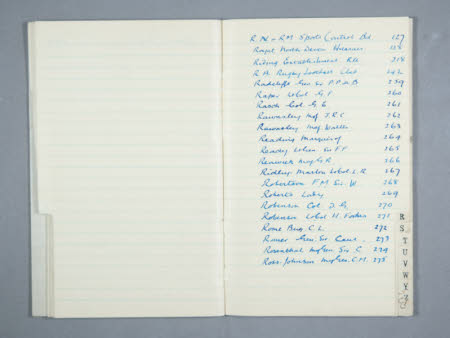 R.N. & R.M. Sports Control Bd 127
Royal North Devon Hussars
Riding Establishment RA 218
R.A. Rugby Football Club 242
Radcliffe Gen Sir P.P. de B 259
Raper Colonel G.F. 260
Rasch Col G.E. 261
Rawnsley 262
Rawnsley 263
Reading Marquis of 264
Ready Sir F.F. 265
Renwick G.R 266
Ridley Martin L.R. 267
Robertson F.M. Sir W 268
Roberts Lady 269
Robinson Col J.G. 270
Robinson H. 271
Rome Brig C.L. 272
Romer Gen. Sir Cecil 273
Rosenthal Sir C 274
Ross-Johnson Gen. C.M. 275
R
S
T
U
V
W
Y